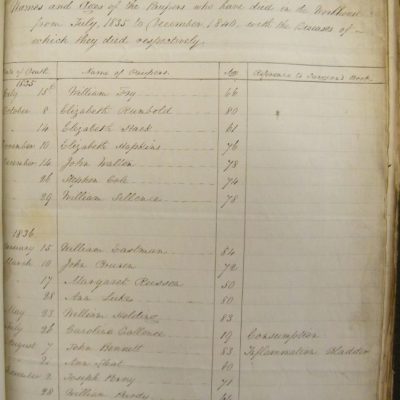 Names and Ages of the Paupers who have died in the Workhouse
from July, 1835 to December 1840, with the Diseases of
which they died respectively.
Date of Death Name of Paupers Age Reference to Surgeon's Book
1835
July 15t William Fry 66
October 8 Elizabeth Rumbold 80
14 Elizabeth 61
November 10 Elizabeth Hopkins 76
December 14 John Wallen 78
26 Stephen Cole 74
29 William 78
1836
January 15 William Eastman 84
March 10 John 72
17 Margaret 80
28 Ann 80
May 23 William 83
July 26 Caroline 19 Consumption
August 7 John Bennett 83 Inflammation Bladder
Ann 80
2 Joseph 71
28 William